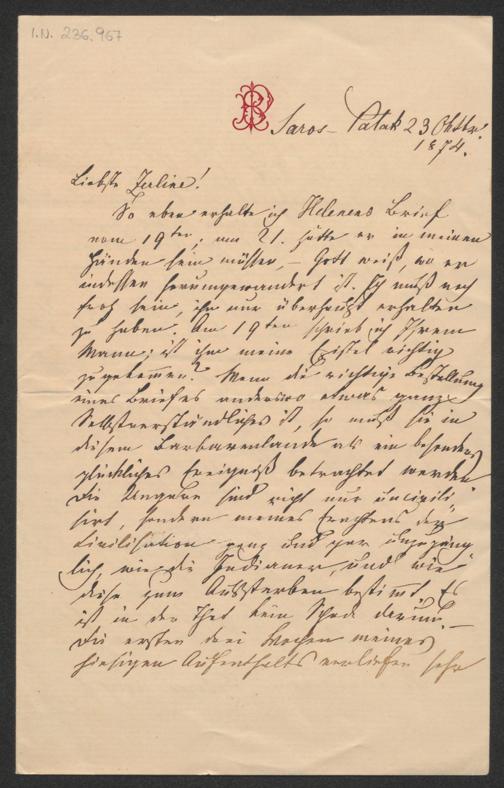 I.N. 236.967
BR
Saros-Patak 23 Oktbr.
1874.
Liebste Zerline!
So eben erhalte ich Helenens Brief
vom 19ten; am 21. hätte er in meinen
Händen sein müssen, – Gott weiß, wo er
indessen herumgewandert ist. Ich muß noch
froh sein, ihn nur überhaupt erhalten
zu haben. Am 19ten schrieb ich Ihrem
Mann; ist ihm meine Epistel richtig
zugekommen? Wenn die richtige Bestellung
eines Briefes anderswo etwas ganz
Selbstverständliches ist, so muß sie in
diesem Barbarenlande als ein besonders
glückliches Ereigniß betrachtet werden.
Die Ungarn sind nicht nur uncivili-
sirt, sondern meines Erachtens der
Civilisation ganz und gar unzugäng-
lich, wie die Indianer, und wie
diese zum Aussterben bestimmt. Es
ist in der That kein Schade darum. –
Die ersten drei Wochen meines
hiesigen Aufenthalts verliefen sehr